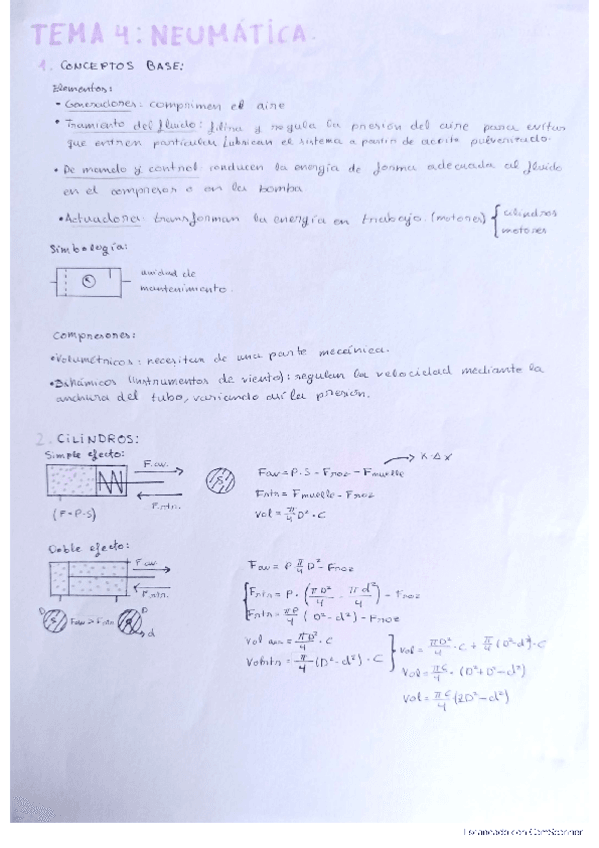 TEMA 4: NEUMÁTICA.
1. CONCEPTOS BASE:
Elementos:
• Generadores: comprimen el aire
• Tramiento del fluido: filtra y regula la presión del aire para evitar
que entren partículas. Lubrican el sistema a partir de aceite pulverizado.
• De mando y control: conducen la energía de forma adecuada al fluido
en el compresor o en la bomba
• Actuadores: transforman la energía en trabajo. (motores) { cilindros
motores
Simbología:
unidad de
mantenimiento.
Compresores:
• Volumétricos: necesitan de una parte mecánica.
• Dinámicos (instrumentos de viento): regulan la velocidad mediante la
anchura del tubo, variando así la presión.
2. CILINDROS:
Simple efecto:
F.av.
F.rtn.
(F=P·S)
S
K·Δx
Fav = P·S - Froz - Fmuelle
Frtn = Fmuelle - Froz
Vol = π/4 D² · C
Doble efecto:
F.av.
F.rtn.
D
Fav > Frtn
D
d
Fav = P π/4 D² - Froz
Frtn = P · (πD²/4 - πd²/4) - Froz
Frtn = πP/4 (D² - d²) - Froz
Vol av = πD²/4 · C
Vol rtn = π/4 (D² - d²) · C
Vol = πD²/4 · C + π/4 (D² - d²) · C
Vol = πC/4 · (D² + D² - d²)
Vol = πC/4 (2D² - d²)
Escaneado con CamScanner